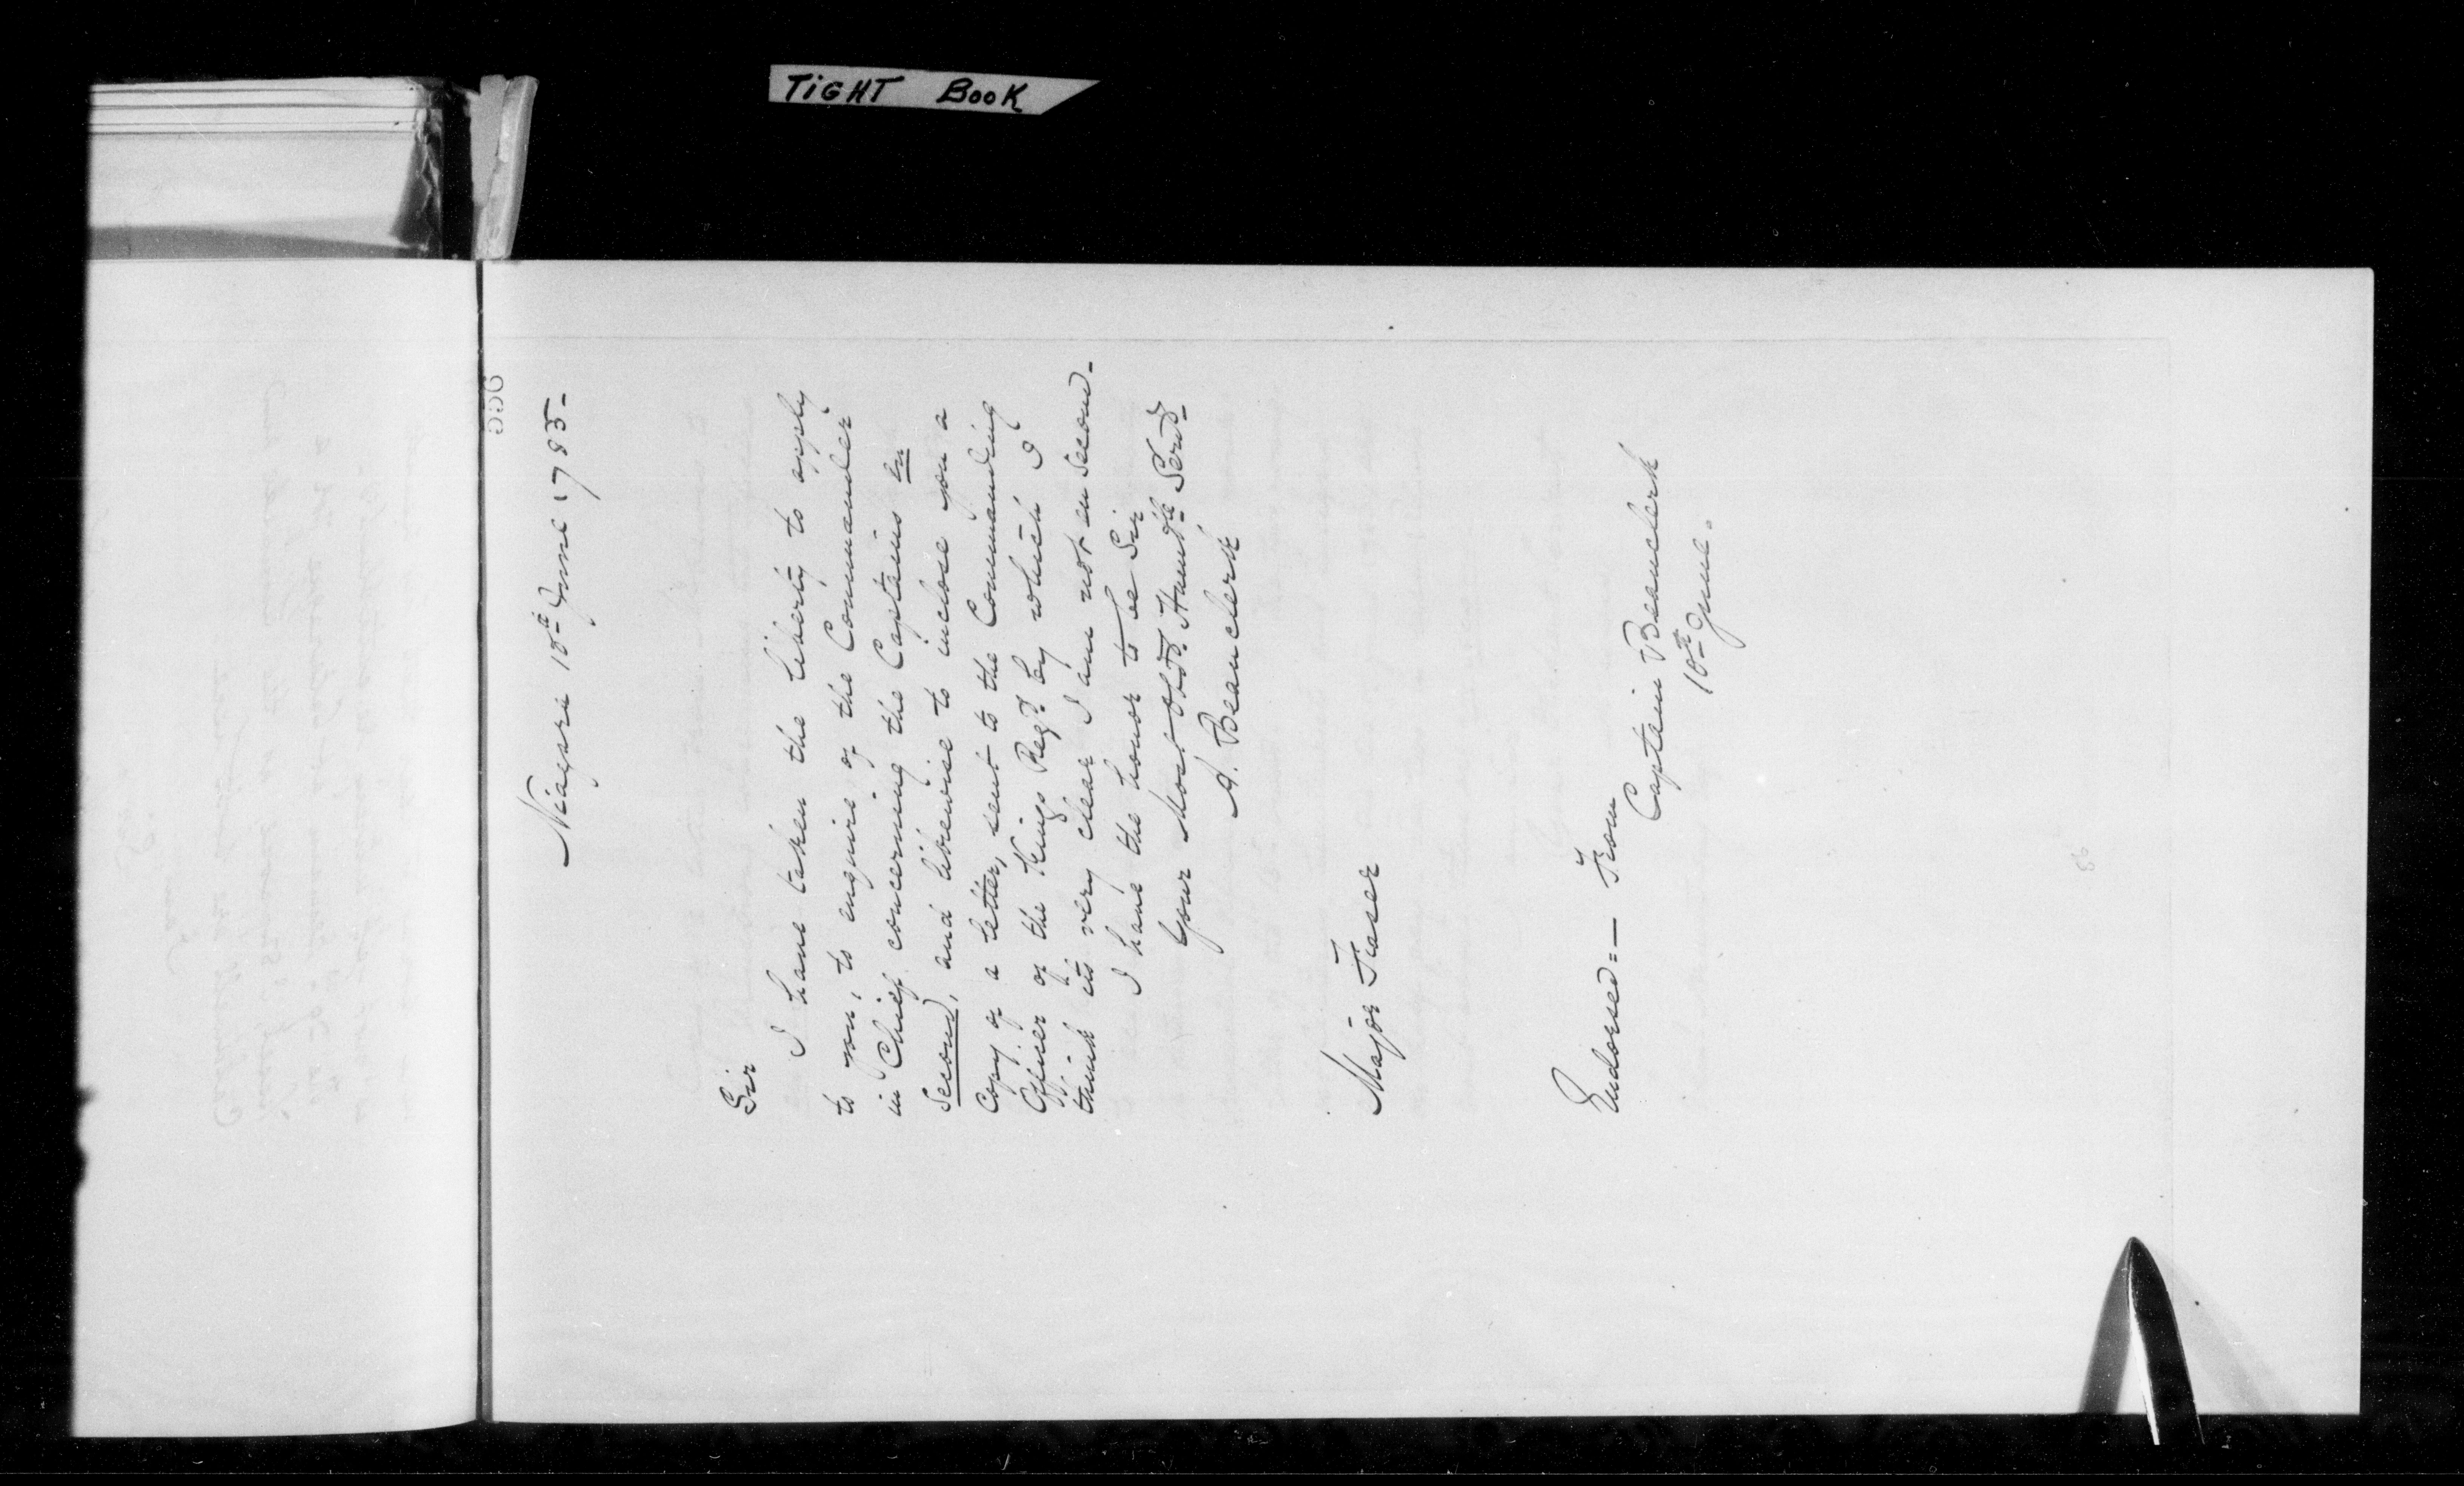 TIGHT BOOK
Niagara 10th June 1785-
Sir
I have taken the liberty to apply
to you, to enquire of the Commander
in Chief concerning the Captains En
Second, and likewise to inclose you a
Copy of a letter, sent to the Commanding
Officer of the Kings Regt. by which I
think its very clear I am not en Second-
I have the honor to be Sir
Your Most Obdt. Humble Servt-
A. Beauclerk
Major Fraser
Endorsed:- From
Captain Beauclerk
10th June.